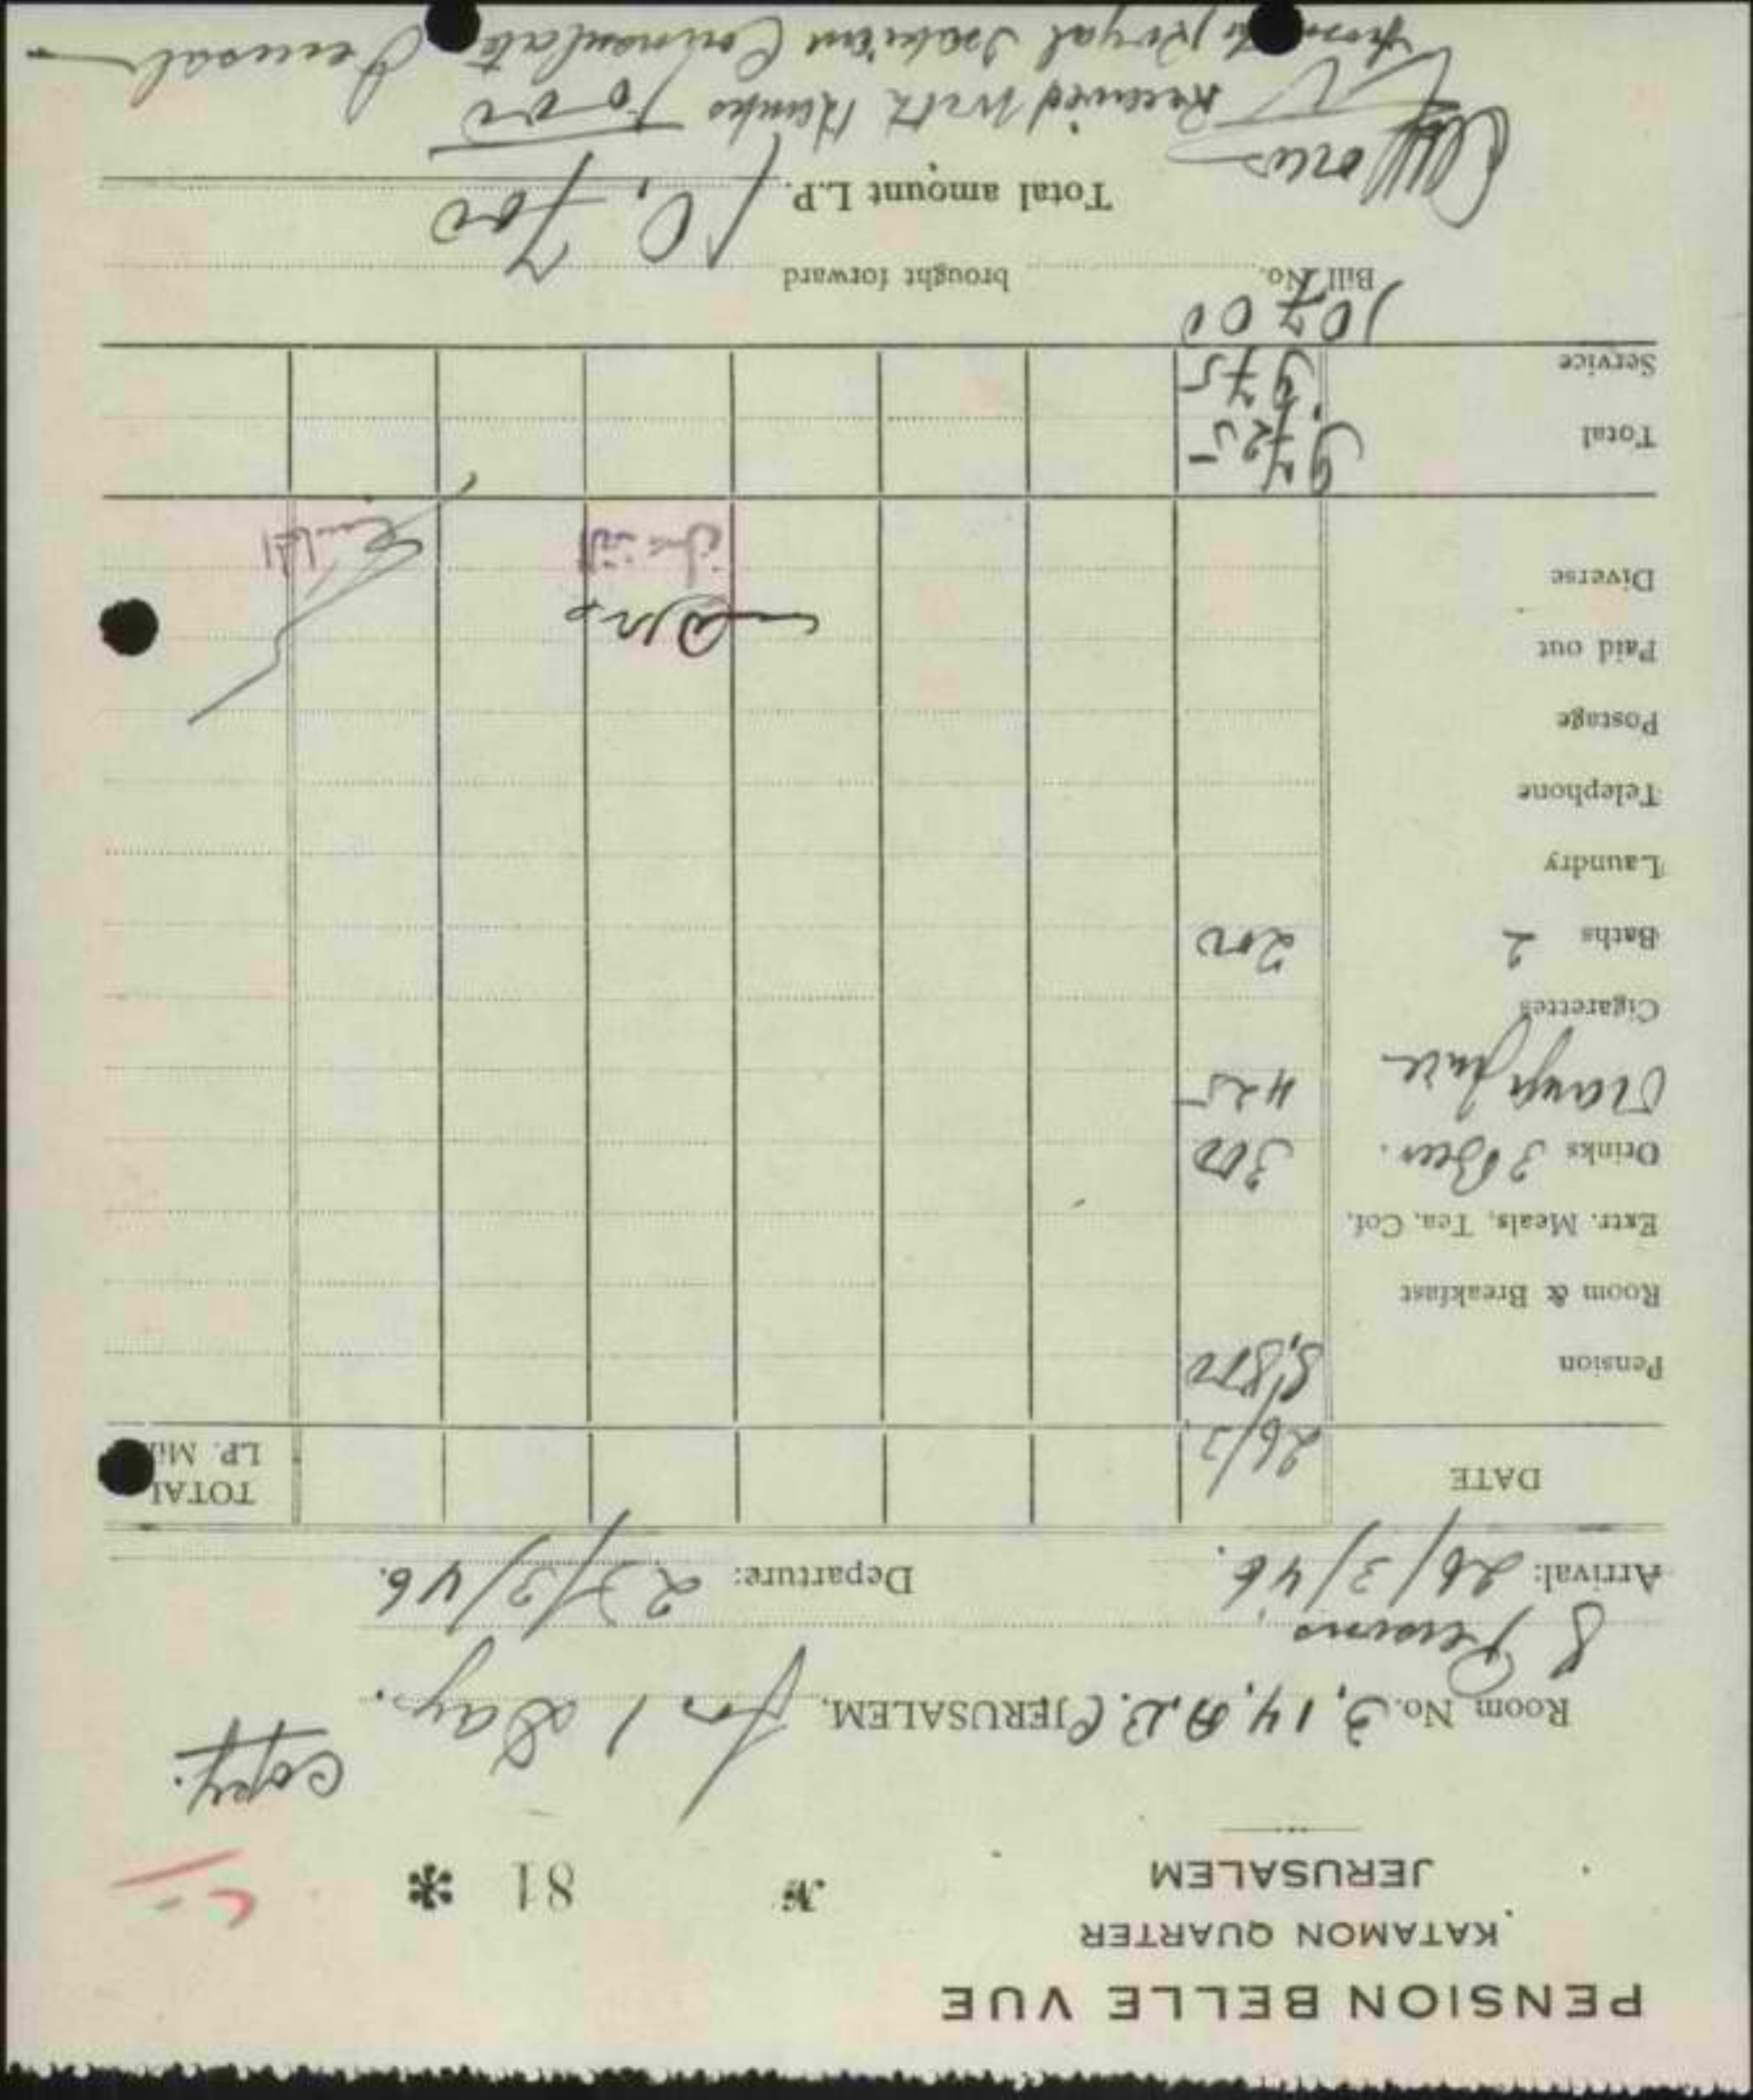 PENSION BELLE VUE
KATAMON QUARTER
JERUSALEM
№ 81 *
copy.
Room No. 3, 14, A.B.C JERUSALEM, for 1 Day.
8 Persons
Arrival: 26/3/46. Departure: 27/3/46.
DATE 26/3 TOTAL
LP. Mil
Pension 8,800
Room & Breakfast
Extr. Meals, Tea, Cof.
Drinks 3 Beer. 300
Orange Juice 425
Cigarettes
Baths 2 200
Laundry
Telephone
Postage
Paid out
Diverse
Total 9,725
Service 975
10700
Bill No. brought forward
Total amount L.P. 10,700
Received with thanks
from the Royal Consulate Jerusal